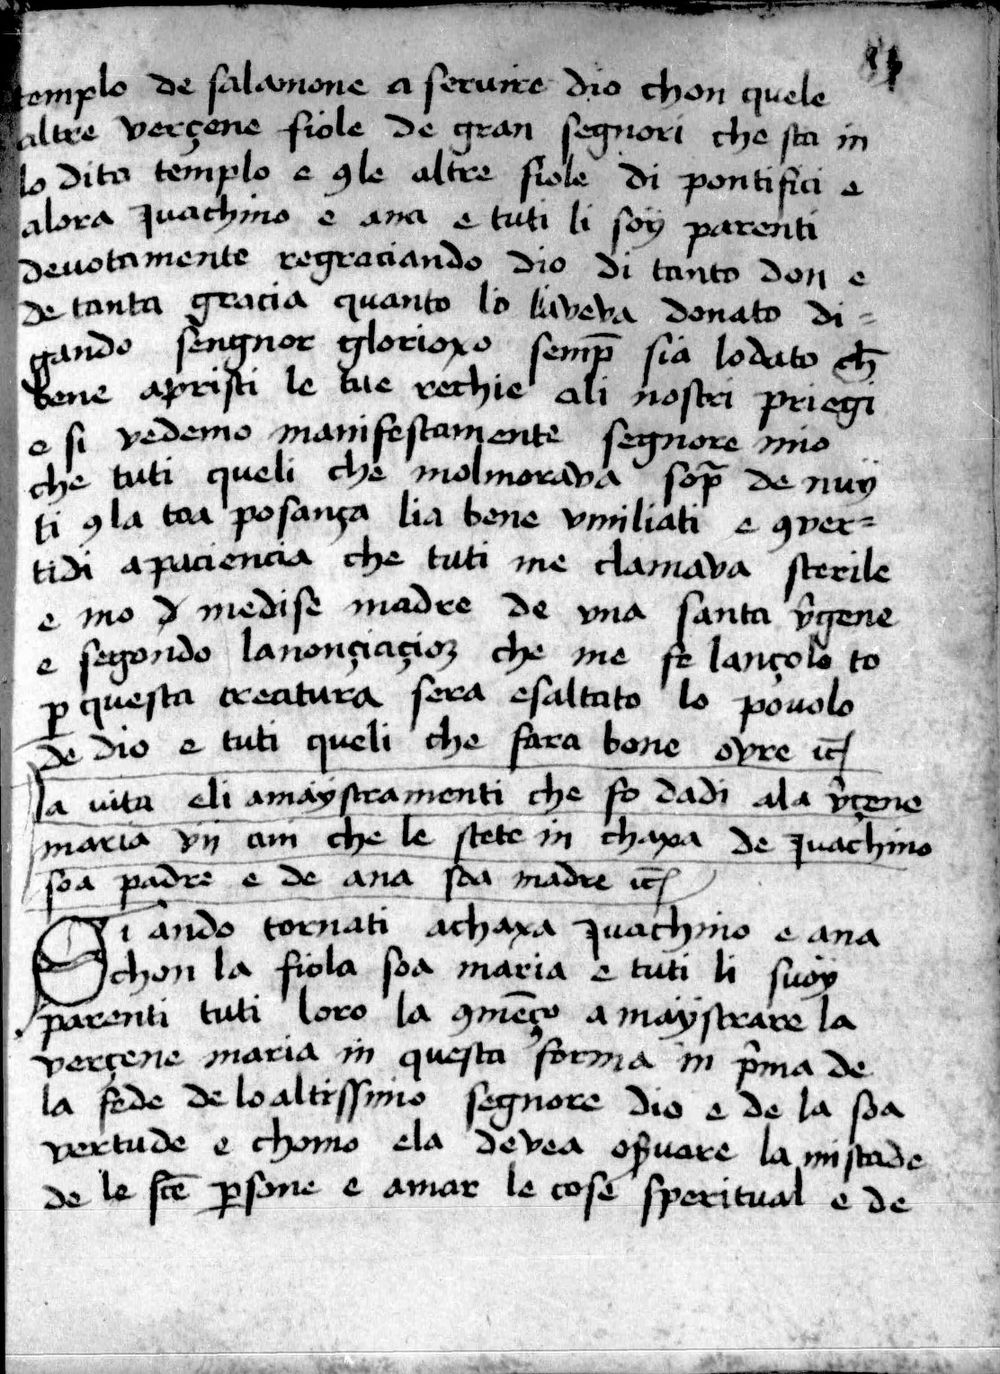 templo de salamone a seruire dio chon quele
altre verçene fiole de gran segnori che sta in
lo dito templo e ꝯle altre fiole di pontifici e
alora Juachino e ana e tuti li soÿ parenti
deuotamente regraciando dio di tanto don e
de tanta gracia quanto lo liaveva donato di=
gando sengnor glorioxo semp̄ sia lodato ch̄
bene apristi le tue rechie ali nostri priegi
e si vedemo manifestamente segnore mio
che tuti queli che molmorava sop̄ de nuÿ
ti ꝯla toa posança lia bene vmiliati e ꝯver=
tidi apaciencia che tuti me clamava sterile
e mo medise madre de vna santa v̄gene
e segondo lanonçiaçioꝫ che me fe lançolo to
ꝑ questa creatura sera esaltato lo povolo
de dio e tuti queli che fara bone ovre
la vita eli amaÿstramenti che fo dadi ala v̄çene
maria vıj ani che le stete in chaxa de Juachino
soa padre e de ana soa madre
Siando tornati achaxa Juachino e ana
chon la fiola soa maria e tuti li suoÿ
parenti tuti loro la ꝯmēço amaÿstrare la
verçene maria in questa forma in p̄ma de
la fede de lo altissimo segnore dio e de la soa
vertude e chomo ela devea op̄uare la mistade
de le sc̄e ꝑsone e amar le cose speritual e de